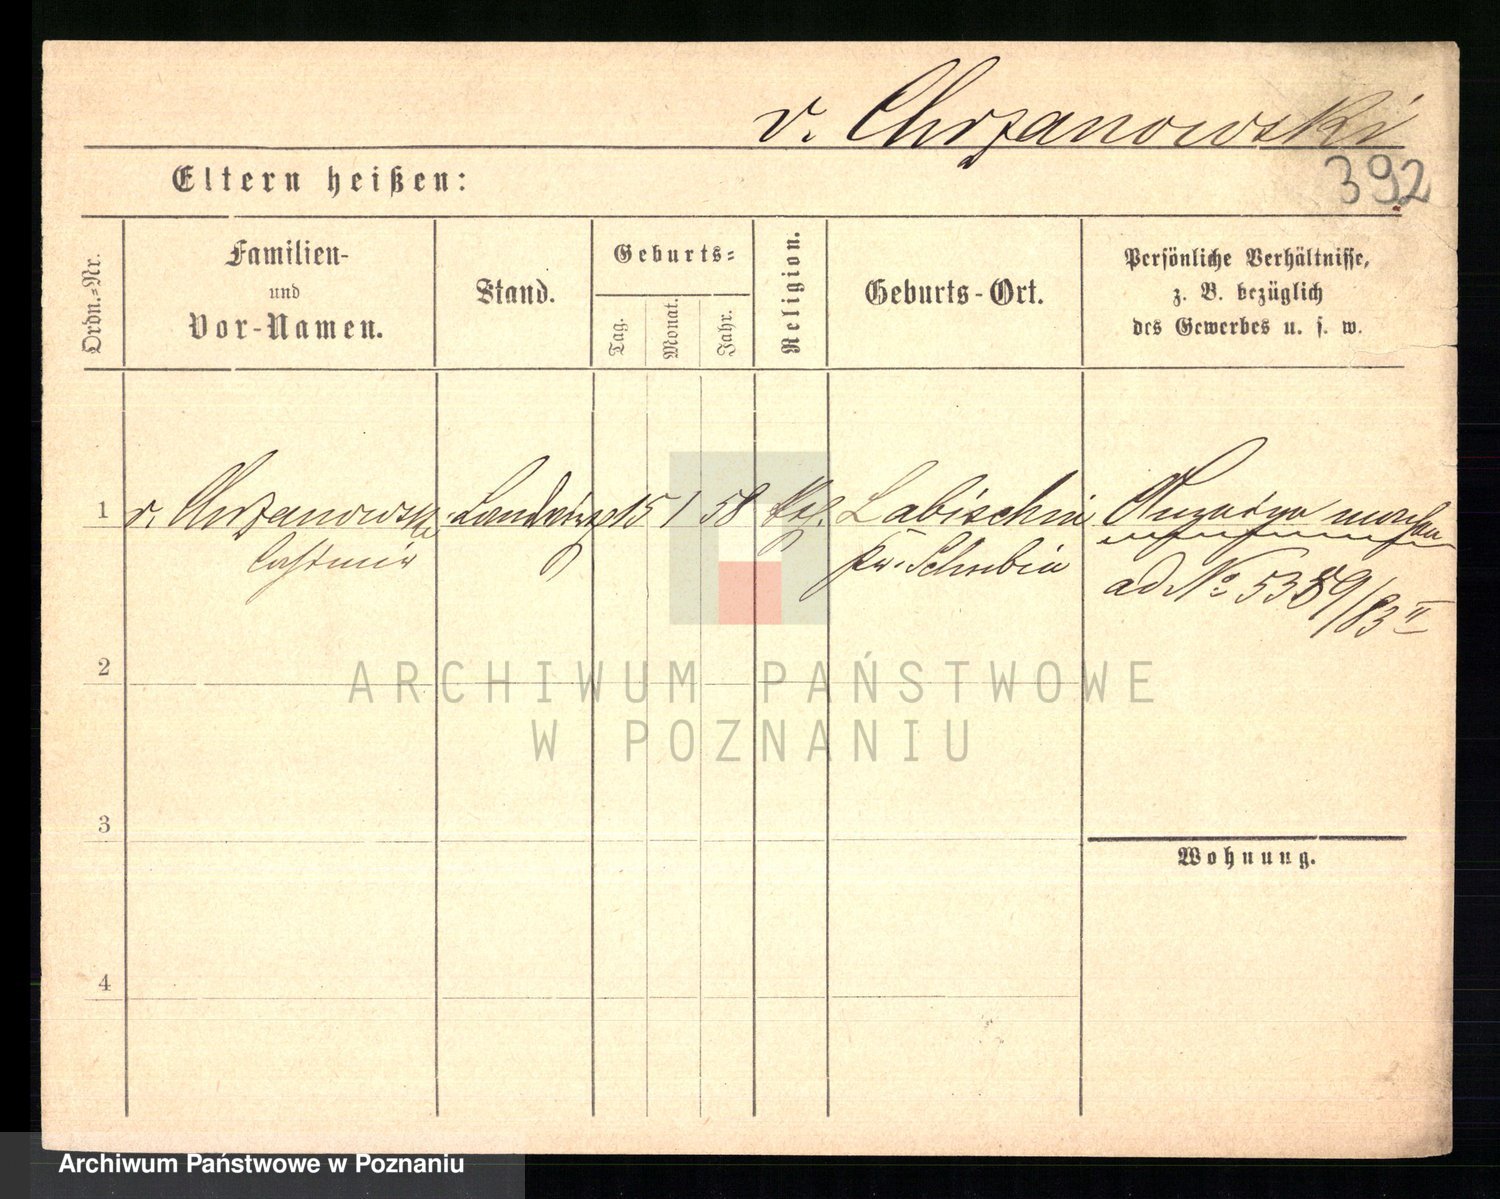 v. Chrzanowski
392
Eltern heißen:
Ordn.-Nr.
Familien-
und
Vor-Namen.
Stand.
Geburts-
Tag.
Monat.
Jahr.
Religion.
Geburts-Ort.
Persönliche Verhältnisse,
z. B. bezüglich
des Gewerbes u. s. w.
1 v. Chrzanowski Landwirth 15 1 58 Kth. Labischin
Casimir Kr. Schubin
ad No 5389/83 II
2
3
4
Wohnung.
ARCHIWUM PAŃSTWOWE
W POZNANIU
Archiwum Państwowe w Poznaniu